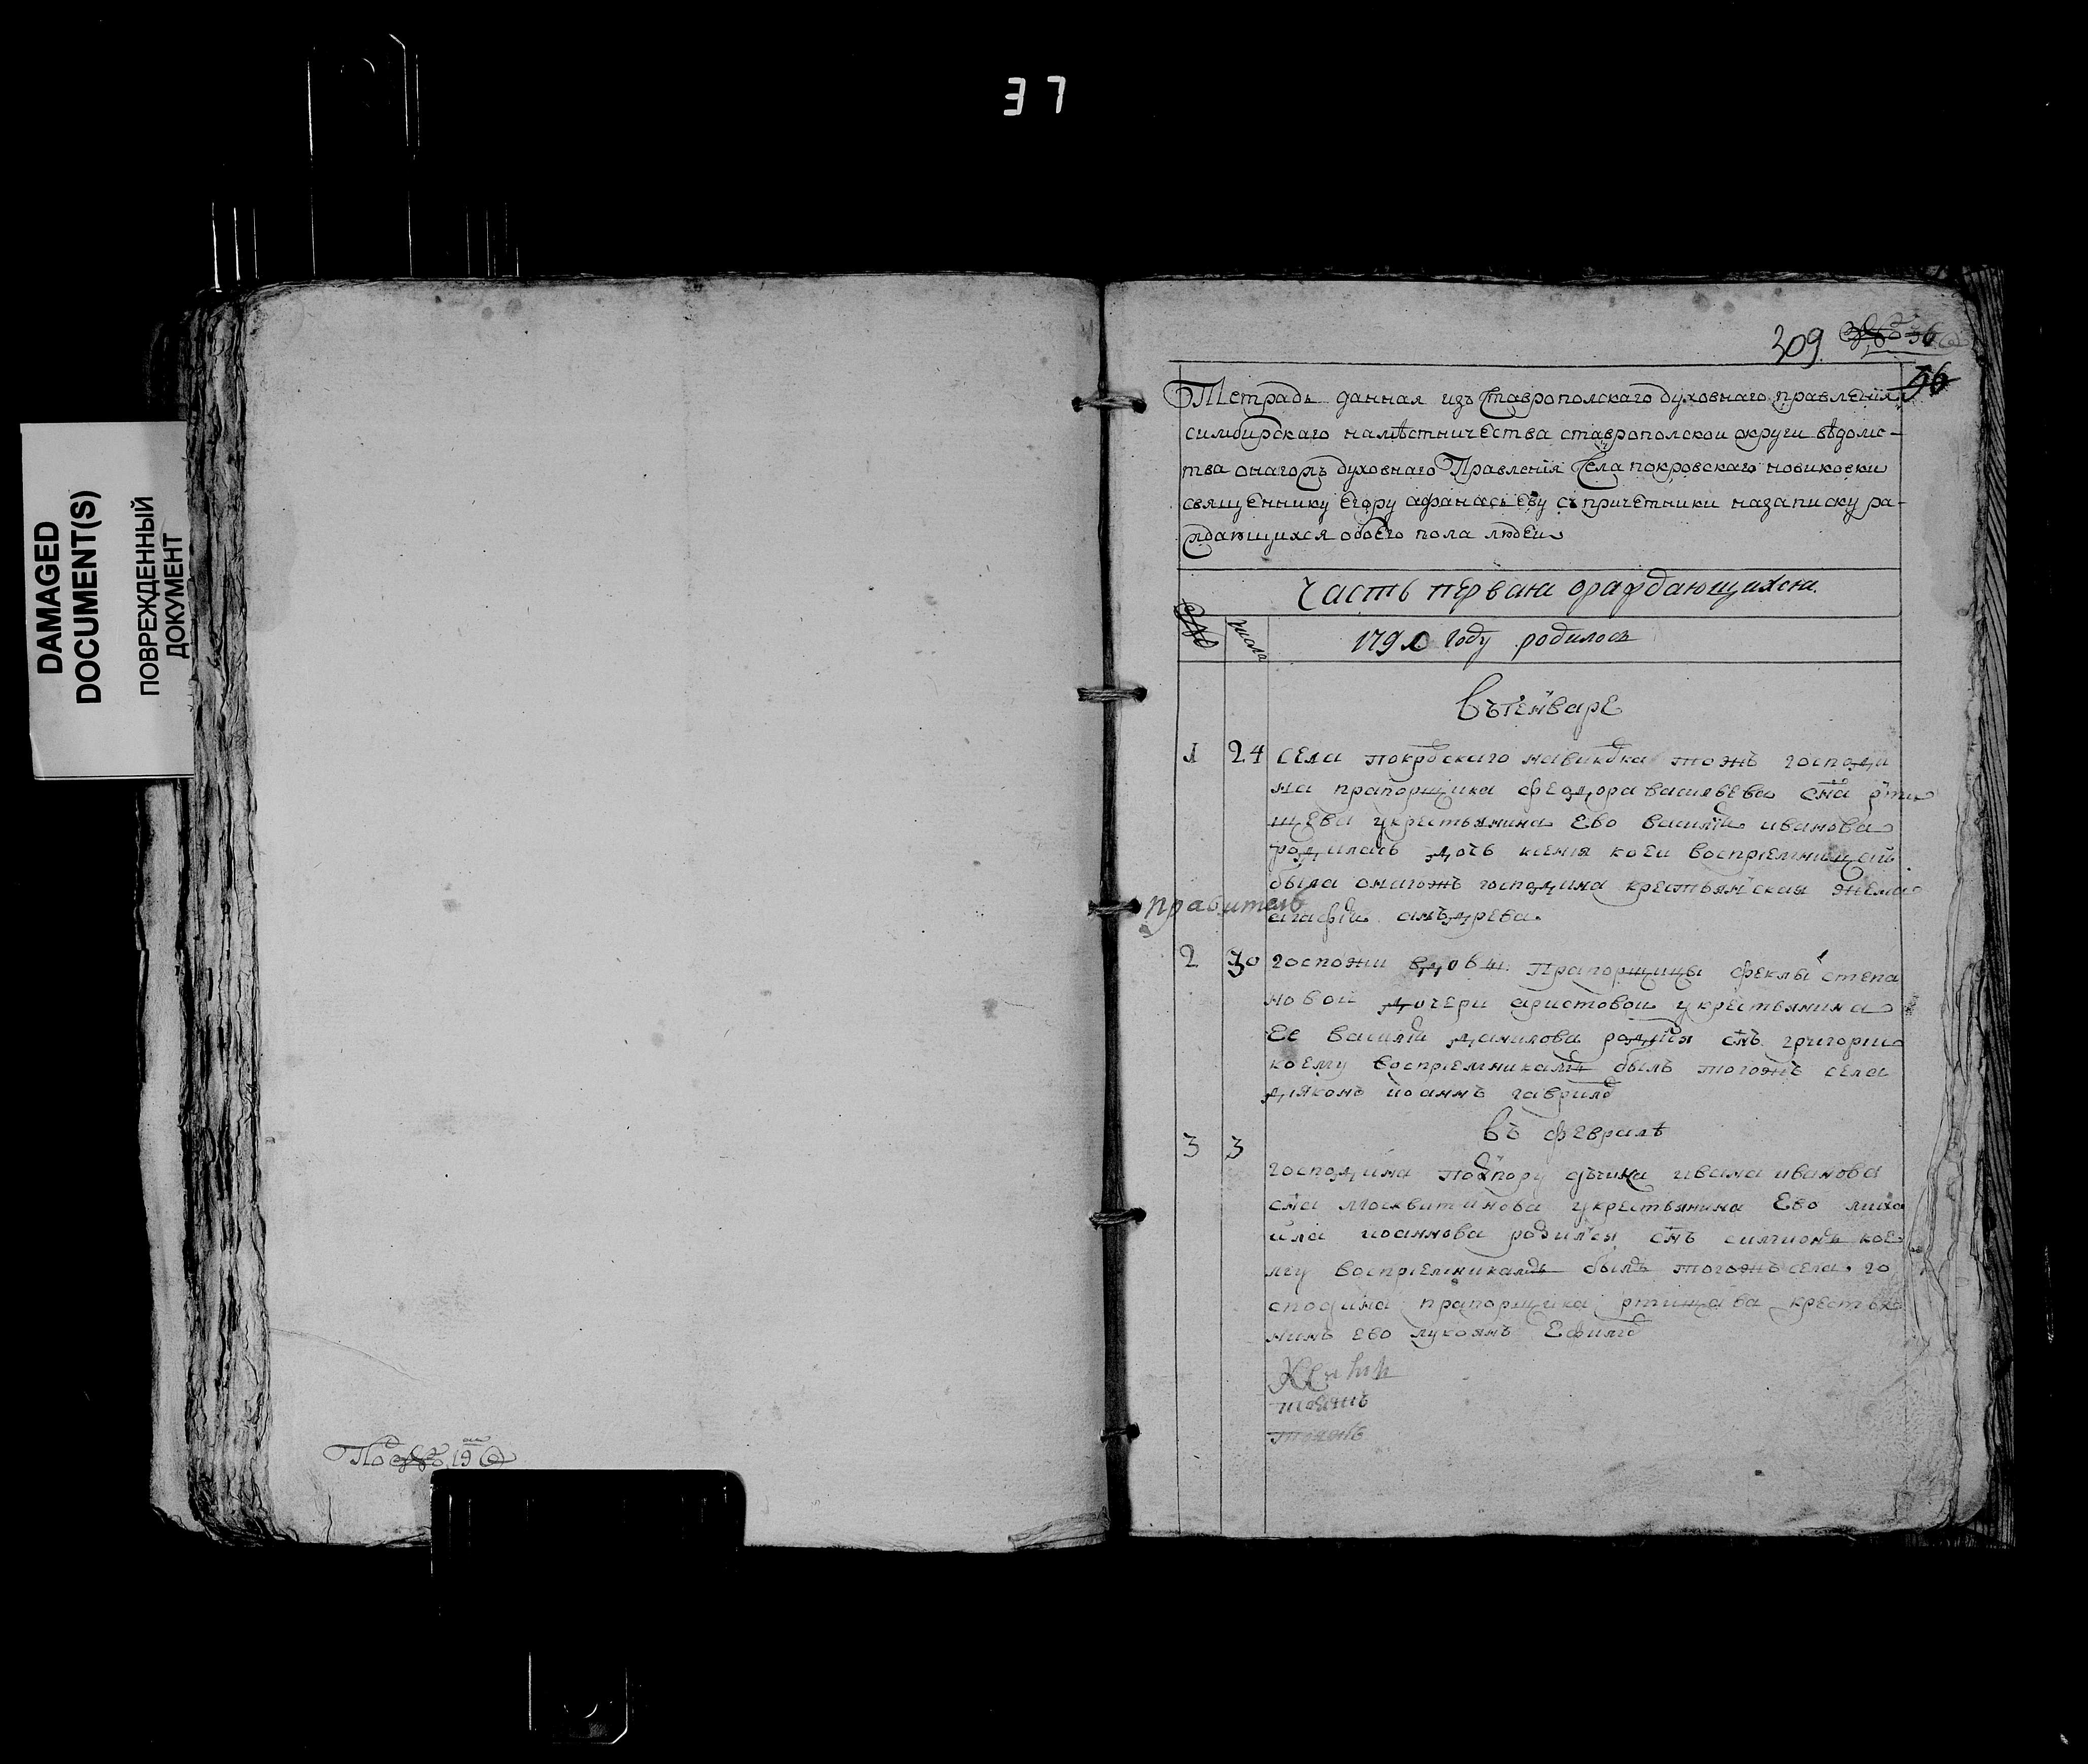 37
DAMAGED
DOCUMENT(S)
ПОВРЕЖДЕННЫЙ
ДОКУМЕНТ
309. 36
56
Тетрадь данная изъ ставрополскаго духовнаго правленія
симбирскаго намѣстничества ставрополскои округи вѣдомс-
тва онагожъ духовнаго Правленія села покровскаго новиковки
священнику Егору афанасьеву съ причетники назаписку ра-
ждающихся обоего пола людеи
Часть первая ораждающихся
№ числа 1790 году родилось
въ генваре
1 24 села покровскаго навиковка тожъ господи
на прапорщика феодора васильева сна рти
щева укрестьянина Ево василіи иванова
родилась дочь ксенія коеи воспріемницеи
была онагожъ господина крестьянская жена
правитель
агафіи анъдрева.
2 30 госпожи вдовы прапорщицы феклы степа
новои дочери аристовои укрестьянина
Ее василіи данилова родился снъ григории
коему воспріемникамъ былъ тогожъ села
дияконъ иоаннъ гаврилов
въ февралѣ
3 3
господина подпоручика ивана иванова
сна москвитинова укрестьянина Ево миха
ила иоаннова родился снъ симионъ кое
му воспріемникамъ былъ тогожъ села го
сподина прапорщика ртищева крестья
нинъ ево лукоянъ Ефимов
тоежъ
По 19